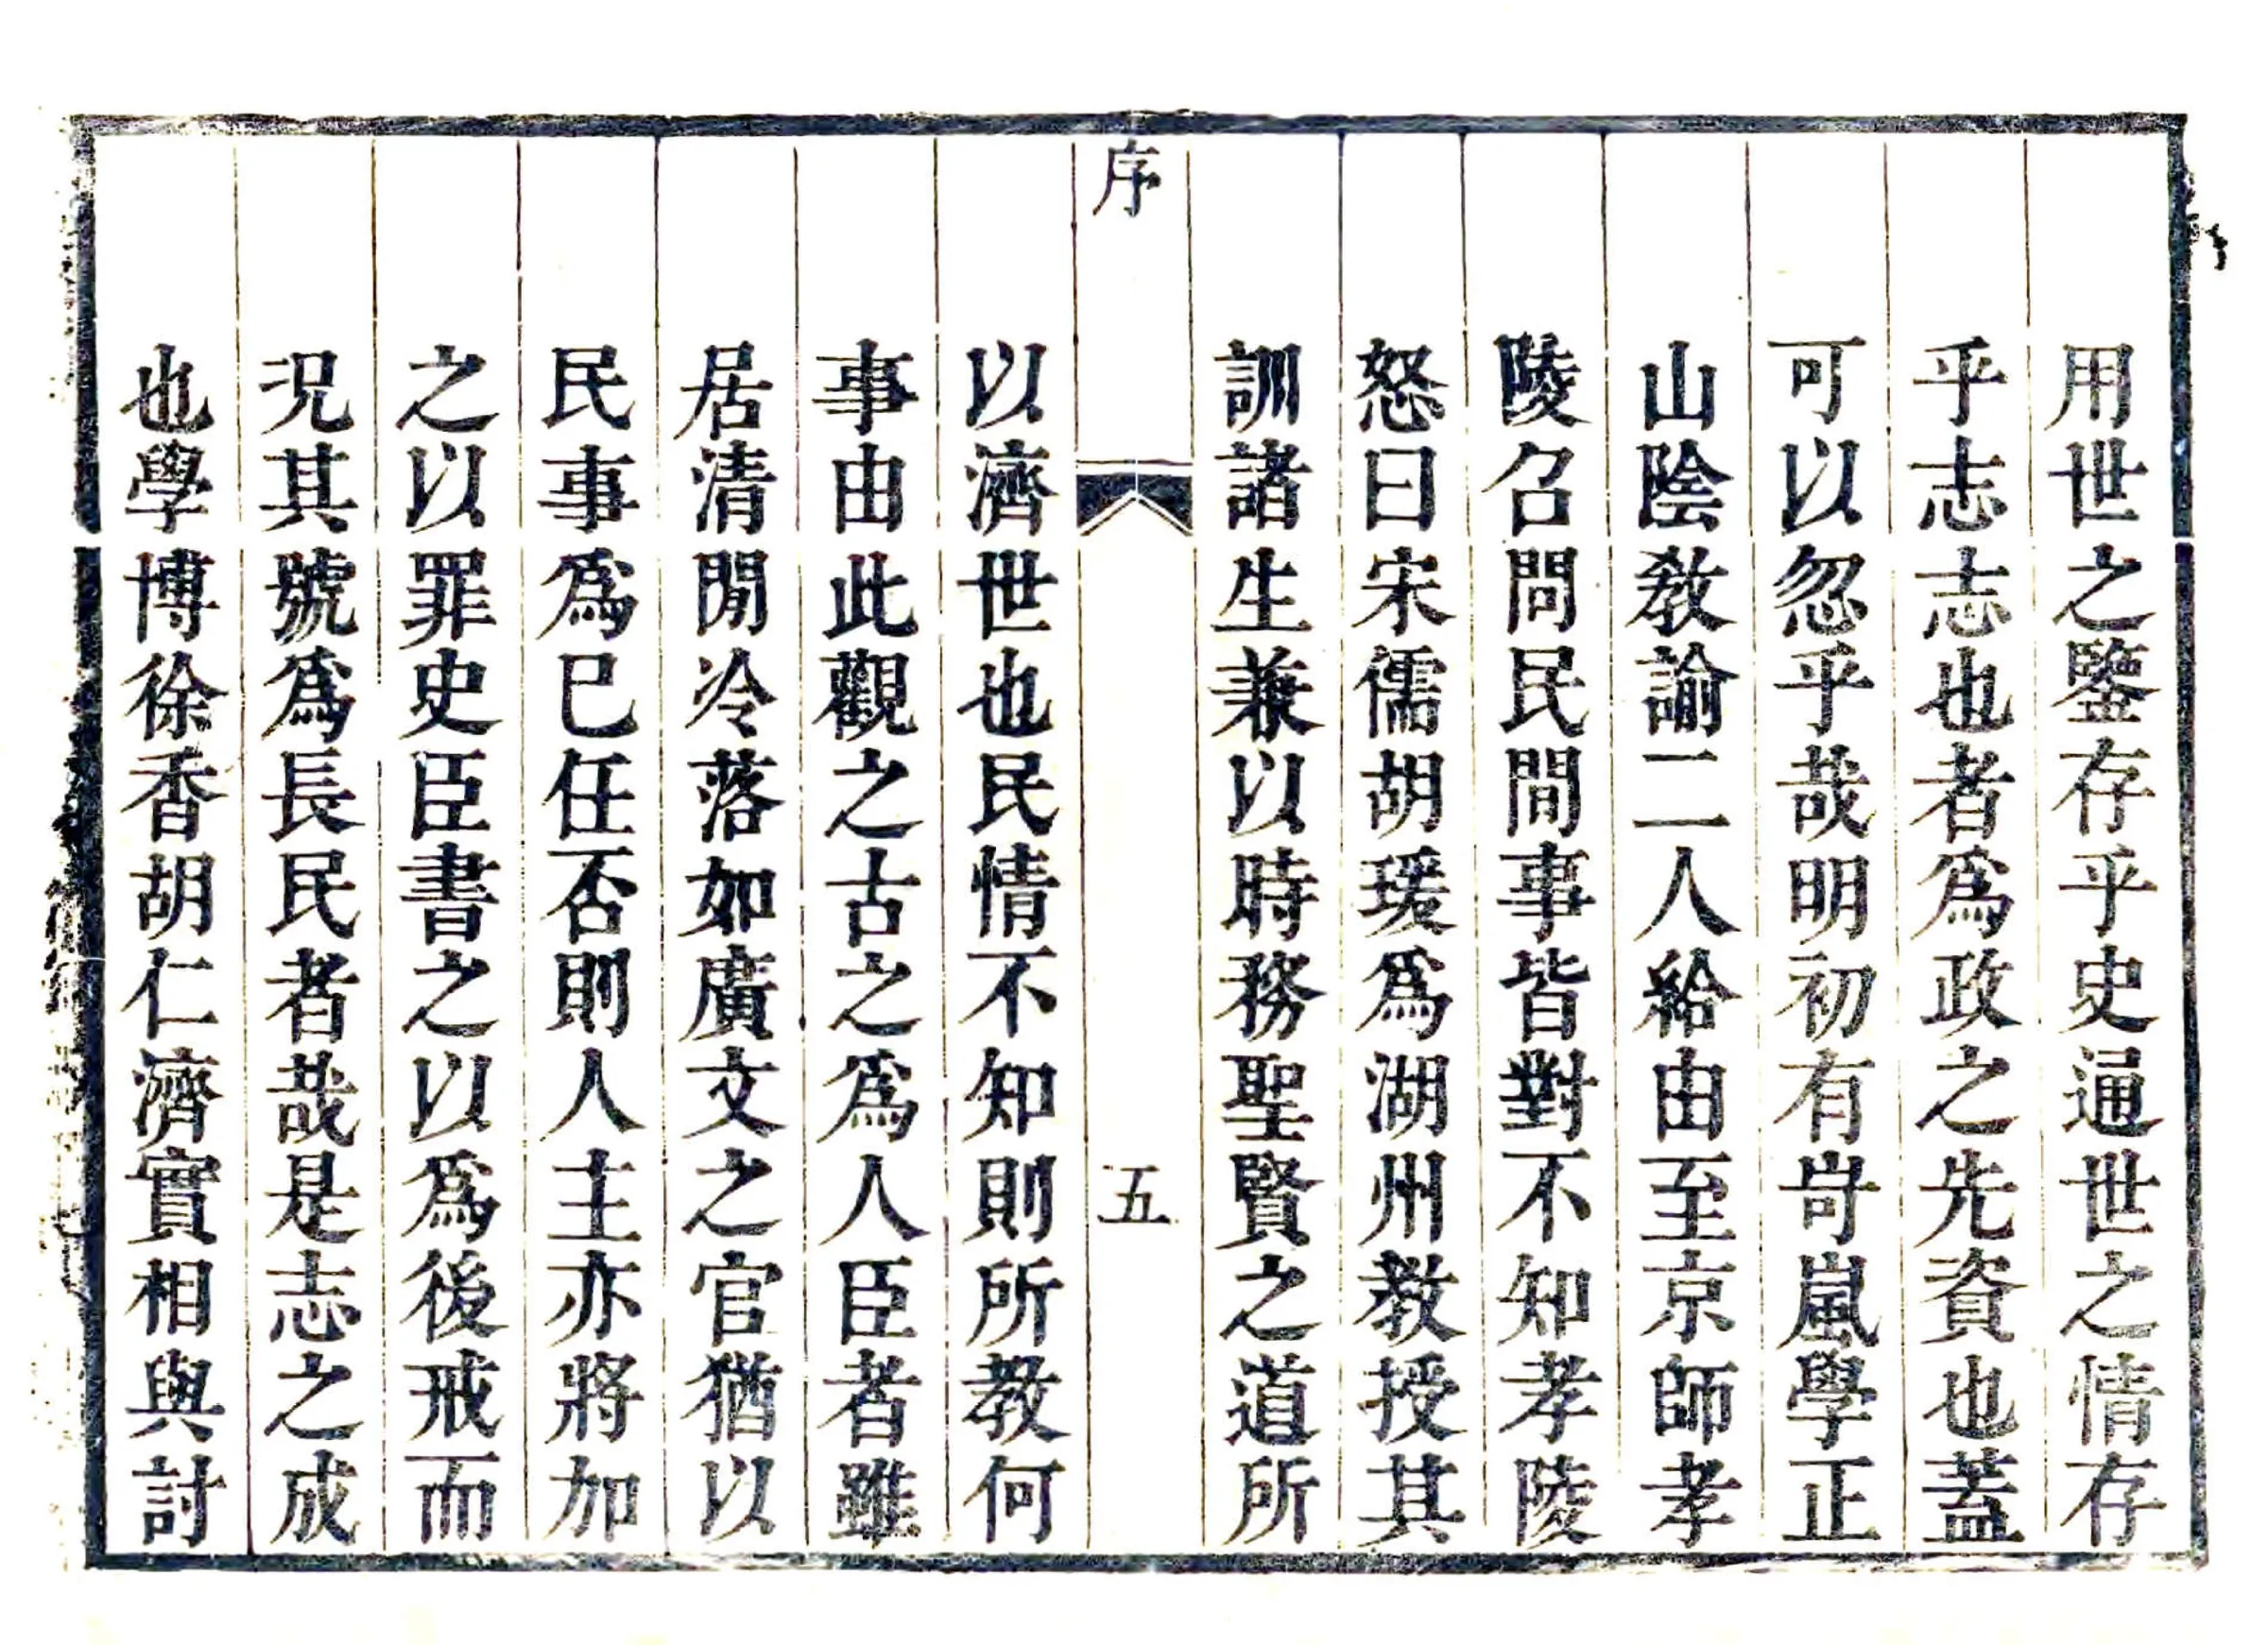 用世之鑒存乎史通世之情存
乎志志也者爲政之先資也蓋
可以忽乎哉明初有岢嵐學正
山陰敎諭二人給由至京師孝
陵召問民間事皆對不知孝陵
怒曰宋儒胡瑗爲湖州教授其
訓諸生兼以時務聖賢之道所
序 五
以濟世也民情不知則所教何
事由此觀之古之爲人臣者雖
居清閒冷落如廣文之官猶以
民事爲巳任否則人主亦將加
之以罪史臣書之以爲後戒而
况其號爲長民者哉是志之成
也學博徐香胡仁濟實相與討